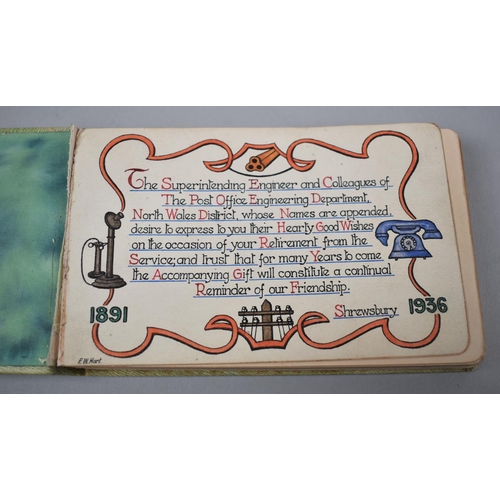 The Superintending Engineer and Colleagues of
The Post Office Engineering Department,
North Wales District, whose Names are appended,
desire to express to you their Hearty Good Wishes
on the occasion of your Retirement from the
Service; and trust that for many Years to come
the Accompanying Gift will constitute a continual
Reminder of our Friendship.
Shrewsbury
1891
1936
E.W. Hart.